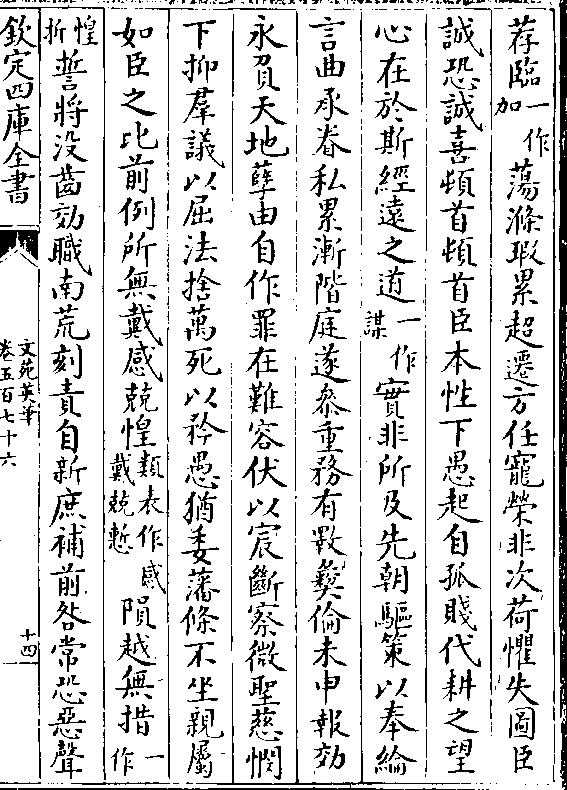 荐臨一作加蕩滌瑕累超遷方任寵榮非次荷懼失圖臣
誠恐誠喜頓首頓首臣本性下愚起自孤賤代耕之望
心在於斯經逺之道一作謀實非所及先朝驅策以奉綸
言曲承眷私累漸階庭遂叅重務有斁彜倫未申報効
永負天地孽由自作罪在難容伏以宸斷察微聖慈憫
下抑羣議以屈法捨萬死以矜愚猶委藩條不坐親屬
如臣之比前例所無戴感兢惶類表作感戴兢慙隕越無措一作
惶折誓將没齒効職南荒刻責自新庶補前咎常恐惡聲
欽定四庫全書
文苑英華
卷五百七十六
十四